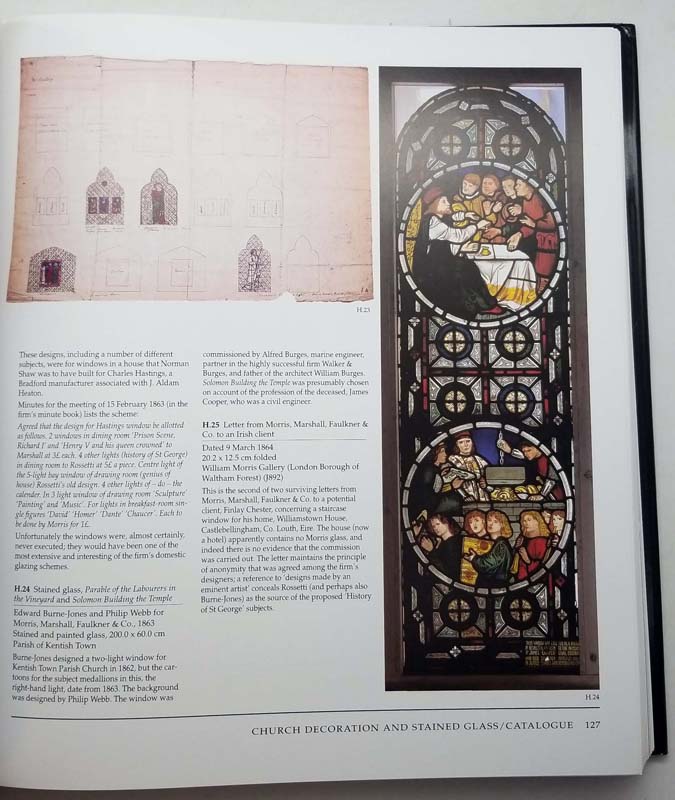 H.23
These designs, including a number of different
subjects, were for windows in a house that Norman
Shaw was to have built for Charles Hastings, a
Bradford manufacturer associated with J. Aldam
Heaton.
Minutes for the meeting of 15 February 1863 (in the
firm's minute book) lists the scheme:
Agreed that the design for Hastings window be allotted
as follows. 2 windows in dining room 'Prison Scene,
Richard I' and 'Henry V and his queen crowned' to
Marshall at 3£ each. 4 other lights (history of St George)
in dining room to Rossetti at 5£ a piece. Centre light of
the 5-light bay window of drawing room (genius of
house) Rossetti's old design. 4 other lights of – do – the
calender. In 3 light window of drawing room 'Sculpture'
'Painting' and 'Music'. For lights in breakfast-room sin-
gle figures 'David' 'Homer' 'Dante' 'Chaucer'. Each to
be done by Morris for 1£.
Unfortunately the windows were, almost certainly,
never executed; they would have been one of the
most extensive and interesting of the firm's domestic
glazing schemes.
H.24 Stained glass, Parable of the Labourers in
the Vineyard and Solomon Building the Temple
Edward Burne-Jones and Philip Webb for
Morris, Marshall, Faulkner & Co., 1863
Stained and painted glass, 200.0 x 60.0 cm
Parish of Kentish Town
Burne-Jones designed a two-light window for
Kentish Town Parish Church in 1862, but the car-
toons for the subject medallions in this, the
right-hand light, date from 1863. The background
was designed by Philip Webb. The window was
commissioned by Alfred Burges, marine engineer,
partner in the highly successful firm Walker &
Burges, and father of the architect William Burges.
Solomon Building the Temple was presumably chosen
on account of the profession of the deceased, James
Cooper, who was a civil engineer.
H.25 Letter from Morris, Marshall, Faulkner &
Co. to an Irish client
Dated 9 March 1864
20.2 x 12.5 cm folded
William Morris Gallery (London Borough of
Waltham Forest) (J892)
This is the second of two surviving letters from
Morris, Marshall, Faulkner & Co. to a potential
client, Finlay Chester, concerning a staircase
window for his home, Williamstown House,
Castlebellingham, Co. Louth, Eire. The house (now
a hotel) apparently contains no Morris glass, and
indeed there is no evidence that the commission
was carried out. The letter maintains the principle
of anonymity that was agreed among the firm's
designers; a reference to 'designs made by an
eminent artist' conceals Rossetti (and perhaps also
Burne-Jones) as the source of the proposed 'History
of St George' subjects.
H.24
CHURCH DECORATION AND STAINED GLASS/CATALOGUE 127